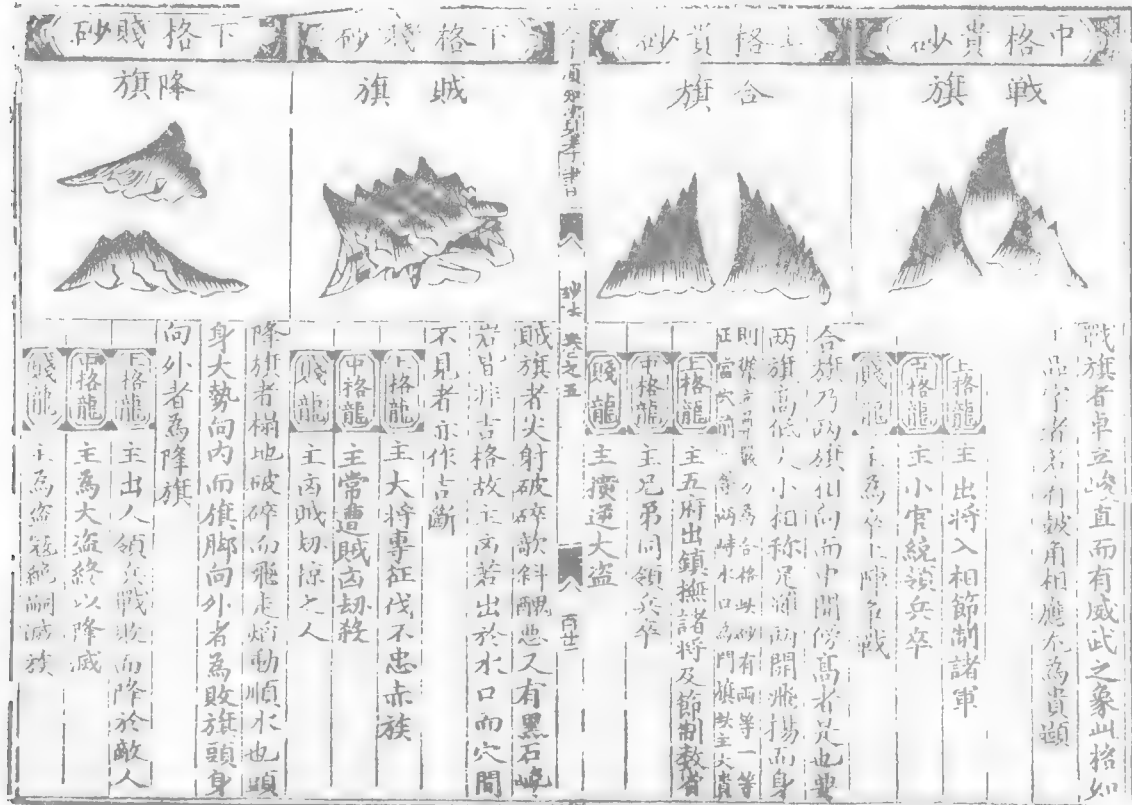 中格貴砂
戰旗
戰旗者卓立峻直而有威武之象此格如
品字者若有皷角相應尤為貴顯
上格龍 主出將入相節制諸軍
中格龍 主小官統領兵卒
賤龍 主為卒上陣
上格貴砂
合旗
合旗乃両旗相向而中間傍高者是也要
両旗高低大小相称尾灑両開飛揚而身
上格龍 主五府出鎮撫諸將及節制数省
中格龍 主兄弟同領兵卒
賤龍 主橫逆大盗
卷之五
下格賤砂
賊旗
賊旗者尖射破碎欹斜醜悪又有黒石
岩皆非吉格故主凶若出於水口而穴間
不見者亦作吉断
上格龍 主大將專征伐不忠赤族
中格龍 主常遭賊凶刼殺
賤龍 主為賊刼掠之人
下格賤砂
降旗
降旗者榻地破碎而飛走㷔動順水也頭
身大勢向内而旗脚向外者為敗旗頭身
向外者為降旗
上格龍 主出人領兵戰敗而降於敵人
中格龍 主為大盗終以降滅
賤龍 主為盗冦絶嗣滅族